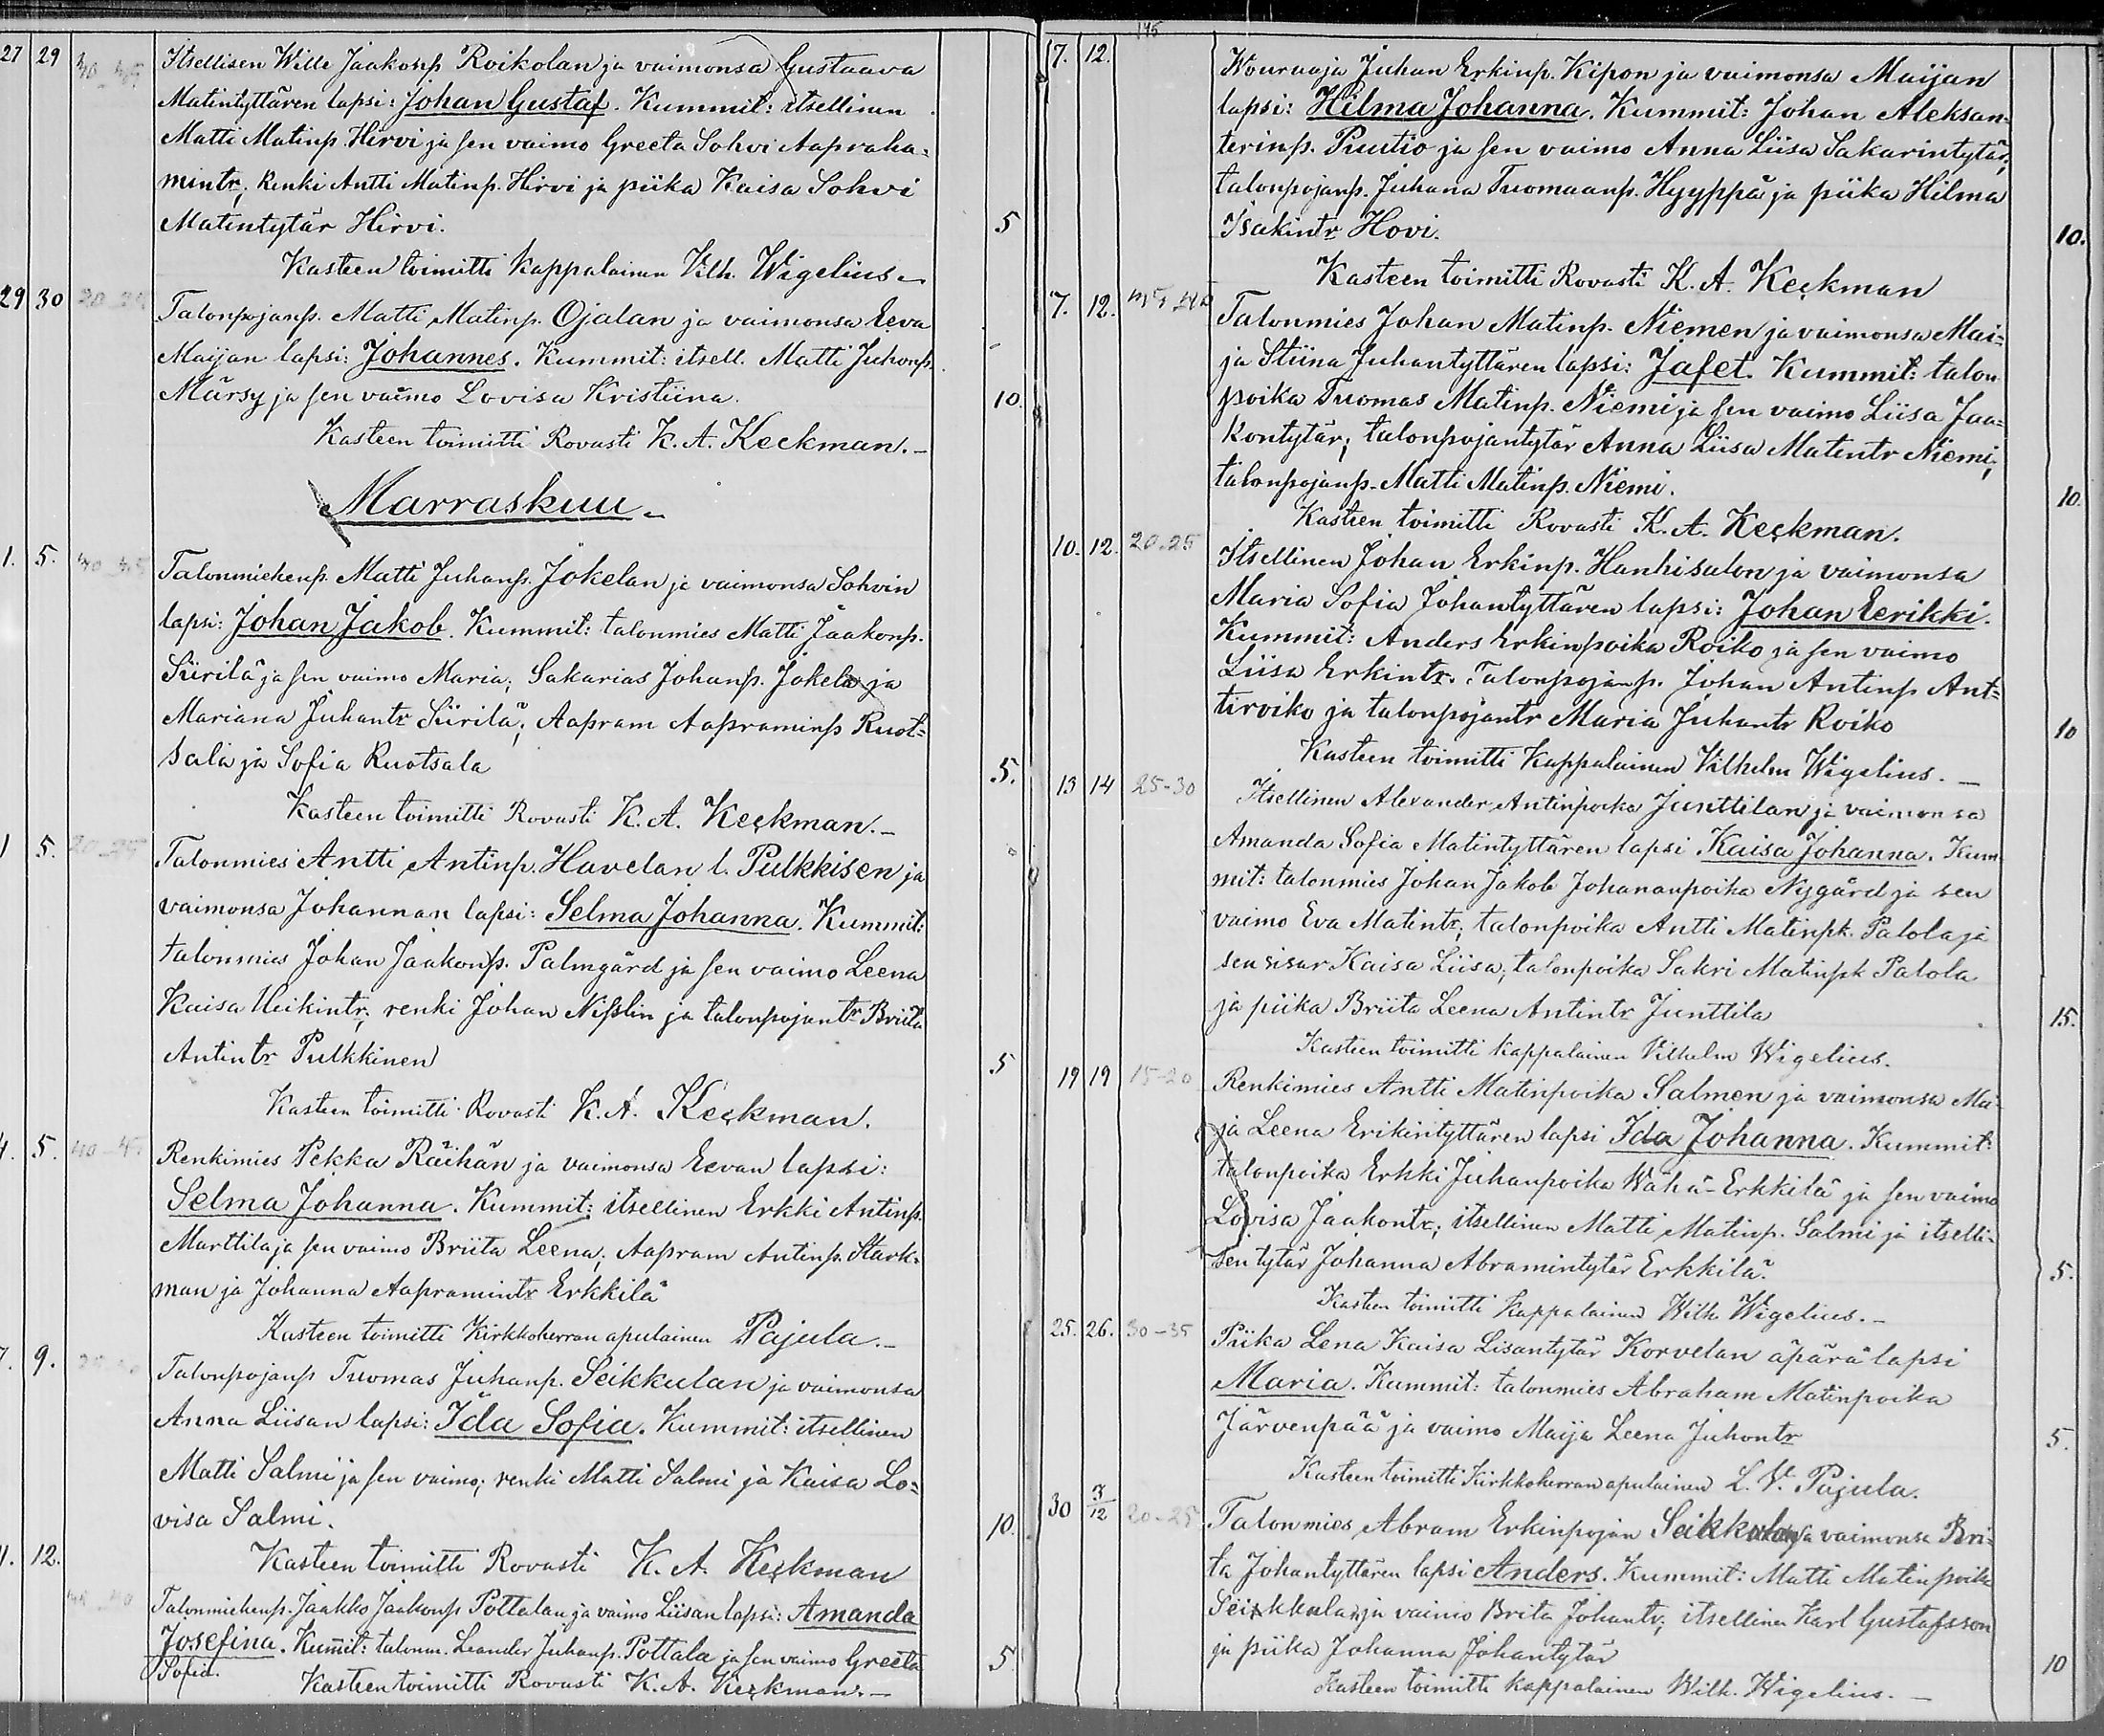 27 29 40-45 Itsellisen Wille Jaakonp Roikolan ja vaimonsa Gustaava
Matintyttären lapsi: Johan Gustaf. Kummit: itsellinen
Matti Matinp. Hirvi ja sen vaimo Greeta Sohvi Aapraha=
mintr; Renki Antti Matinp. Hirvi ja piika Kaisa Sohvi
Matintytär Hirvi. 5
Kasteen toimitti Kappalainen Vilh. Wigelius
29 30 Talonpojanp. Matti Matinp. Ojalan ja vaimonsa Eeva
Maijan lapsi: Johannes. Kummit: itsell. Matti Juhonp.
Märsy ja sen vaimo Lovisa Kristiina. 10.
Kasteen toimitti Rovasti K. A. Keckman.
Marraskuu
1. 5. 40-45 Talonmiehenp. Matti Juhanp. Jokelan ja vaimonsa Sohvin
lapsi: Johan Jakob. Kummit: talonmies Matti Jaakonp.
Siirilä ja sen vaimo Maria; Sakarias Johanp. Jokela ja
Mariana Juhantr Siirilä; Aapram Aapraminp Ruot=
sala ja Sofia Ruotsala 5.
Kasteen toimitti Rovasti K. A. Keckman.
1 5. 20-25 Talonmies Antti Antinp. Havelan l. Pulkkisen ja
vaimonsa Johannan lapsi: Selma Johanna. Kummit:
talonmies Johan Jaakonp. Palmgård ja sen vaimo Leena
Kaisa Heikintr; renki Johan Nisslin ja talonpojantr Briita
Antintr Pulkkinen 5
Kasteen toimitti Rovasti K. A. Keckman.
4. 5. 40-45 Renkimies Pekka Räihän ja vaimonsa Eevan lapsi:
Selma Johanna. Kummit: itsellinen Erkki Antinp.
Marttila ja sen vaimo Briita Leena; Aapram Antinp. Stark=
man ja Johanna Aapramintr Erkkilä
Kasteen toimitti Kirkkoherran apulainen Pajula.
7. 9. Talonpojanp Tuomas Juhanp. Seikkulan ja vaimonsa
Anna Liisan lapsi: Ida Sofia. Kummit: itsellinen
Matti Salmi ja sen vaimo; renki Matti Salmi ja Kaisa Lo=
visa Salmi. 10.
Kasteen toimitti Rovasti K. A. Keckman
11. 12. Talonmiehenp. Jaakko Jaakonp Pottalan ja vaimo Liisan lapsi: Amanda
Josefina. Kummit: talonm. Leander Juhanp. Pottala ja sen vaimo Greeta
Sofia. 5
Kasteen toimitti Rovasti K. A. Keckman.
145
7. 12. Wouraaja Juhan Erkinp. Kipon ja vaimonsa Maijan
lapsi: Hilma Johanna. Kummit: Johan Aleksan=
terinp. Puutio ja sen vaimo Anna Liisa Sakarintytär;
talonpojanp. Juhana Tuomaanp. Hyyppä ja piika Hilma
Isakintr Hovi. 10.
Kasteen toimitti Rovasti K. A. Keckman
7. 12. Talonmies Johan Matinp. Niemen ja vaimonsa Mai=
ja Stiina Juhantyttären lapsi: Jafet. Kummit: talon
poika Tuomas Matinp. Niemi ja sen vaimo Liisa Jaa=
kontytär; talonpojantytär Anna Liisa Matintr Niemi;
talonpojanp. Matti Matinp. Niemi. 10.
Kasteen toimitti Rovasti K. A. Keckman.
10. 12. 20-25 Itsellinen Johan Erkinp. Hanhisalon ja vaimonsa
Maria Sofia Johantyttären lapsi: Johan Eerikki.
Kummit: Anders Erkinpoika Roiko ja sen vaimo
Liisa Erkintr. Talonpojanp. Johan Antinp Ant=
tiroiko ja talonpojantr Maria Juhantr Roiko 10
Kasteen toimitti Kappalainen Vilhelm Wigelius.
13 14 25-30 Itsellinen Alexander Antinpoika Junttilan ja vaimonsa
Amanda Sofia Matintyttären lapsi Kaisa Johanna. Kum
mit: talonmies Johan Jakob Johananpoika Nygård ja sen
vaimo Eva Matintr; talonpoika Antti Matinpk. Palola ja
sen sisar Kaisa Liisa; talonpoika Sakri Matinpk Palola
ja piika Briita Leena Antintr Junttila 15.
Kasteen toimitti kappalainen Vilhelm Wigelius.
19 19 15-20 Renkimies Antti Matinpoika Salmen ja vaimonsa Mai-
ja Leena Erikintyttären lapsi Ida Johanna. Kummit:
talonpoika Erkki Juhanpoika Wähä-Erkkilä ja sen vaimo
Lovisa Jaakontr; itsellinen Matti Matinp. Salmi ja itselli-
sen tytär Johanna Abramintytär Erkkilä. 5.
Kasteen toimitti kappalainen Wilh. Wigelius.
25. 26. 30-35 Piika Lena Kaisa Lisantytär Korvelan äpärä lapsi
Maria. Kummit: talonmies Abraham Matinpoika
Järvenpää ja vaimo Maija Leena Juhontr 5.
Kasteen toimitti Kirkkoherran apulainen L. V. Pajula.
30 3/12 20-25 Talonmies Abram Erkinpojan Seikkulan ja vaimonsa Bri-
ta Johantyttären lapsi Anders. Kummit: Matti Matinpoika
Seikkula ja vaimo Brita Johantr; itsellinen Karl Gustafsson
ja piika Johanna Johantytär 10
Kasteen toimitti kappalainen Wilh. Wigelius.